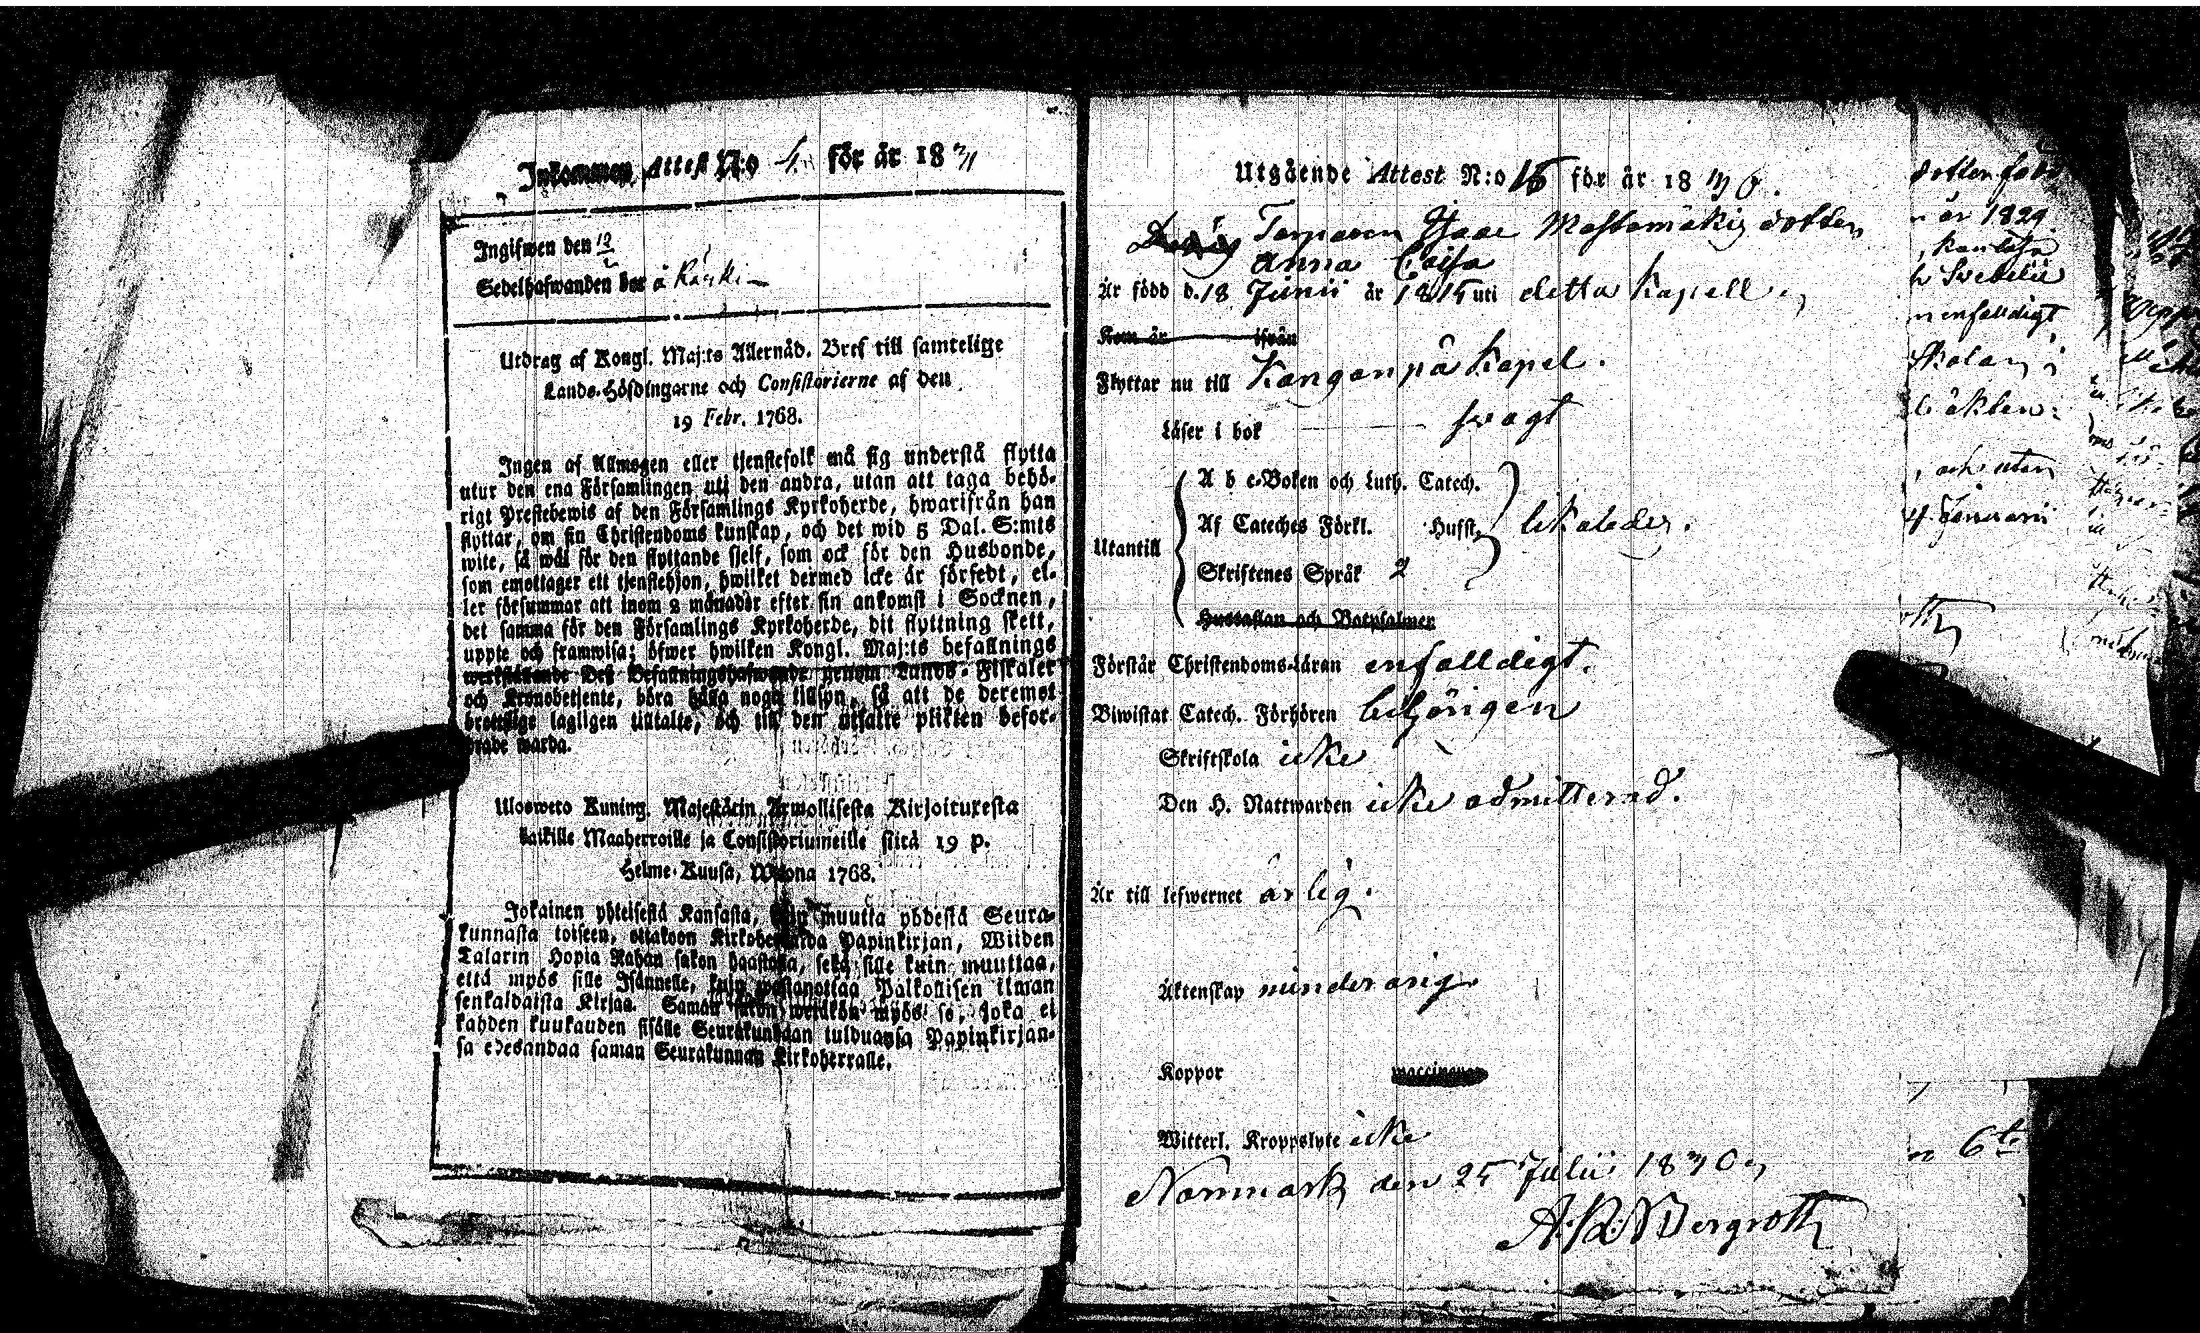 Inkommen Attest N:o 4. för år 1831
Ingifwen den 12
Sedelhafwanden bor å Räfki
Utdrag af Kongl. Maj:ts Allernåd. Bref till samtelige
Lands-Höfdingarne och Consistorierne af den
19 Febr. 1768.
Ingen af Allmogen eller tjenstefolk må sig understå flytta
utur den ena Församlingen uti den andra, utan att taga behö-
rigt Prestebewis af den Församlings Kyrkoherde, hwarifrån han
flyttar, om sin Christendoms kunskap, och det wid 5 Dal. S:mts
wite, så wäl för den flyttande sjelf, som ock för den Husbonde,
som emottager ett tjenstehjon, hwilket dermed icke är försedt, el-
ler försummar att inom 2 månader efter sin ankomst i Socknen,
det samma för den Församlings Kyrkoherde, dit flyttning skett,
uppte och framwisa; öfwer hwilken Kongl. Maj:ts befallnings
werkställande Dess Befallningshafwande genom Lands-Fiskaler
och Kronobetjente, böra hålla noga tillsyn, så att de deremot
brottslige lagligen tilltalte, och till den utsatte plikten befor-
drade warda.
Ulosweto Kuning. Majestätin Armollisesta Kirjoituxesta
kaikille Maaherroille ja Consistoriumeille siitä 19 p.
Helme-Kuusa, Wuona 1768.
Jokainen yhteisestä Kansasta, kuin muutta yhdestä Seura-
kunnasta toiseen, ottakoon Kirkoherralda Papinkirjan, Wiiden
Talarin Hopia Rahan sakon haastolla, sekä sille kuin muuttaa,
että myös sille Isännelle, kuin wastanottaa Palkollisen ilman
senkaldaista Kirjaa. Saman sakon wetäkön myös se, joka ei
kahden kuukauden sisälle Seurakundaan tulduansa Papinkirjan-
sa edesandaa saman Seurakunnan Kirkoherralle.
Utgående Attest N:o 15 för år 1830.
Torparen Isaac Mastamäkis dotter
Anna Caisa
Är född d. 18 Junii år 1815 uti detta Kapell.
Kom år ifrån
Flyttar nu till Kanganpä Kapel.
Läser i bok swagt
Utantill
A b c-Boken och Luth. Catech.
Af Cateches Förkl. Hufst. likaledes.
Skriftenes Språk 2
Hustaflan och Botpsalmer
Förstår Christendoms-Läran enfalldigt.
Biwistat Catech. Förhören behörigen
Skriftskola icke
Den H. Nattwarden icke admitterad.
Är till lefwernet ärlig.
Äktenskap minderårig.
Koppor vaccinerad
Witterl. Kroppslyte icke
Norrmark den 25 Julii 1830.
A. R. Bergroth
dotter född
år 1829
Svebelii
enfaldigt
Skolan
och utan
Januarii
6te